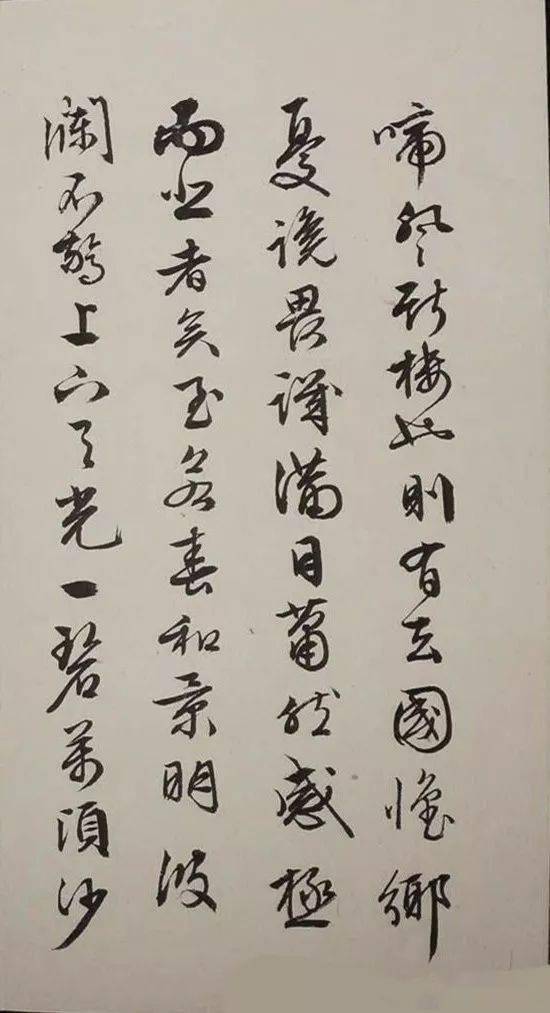 啼登斯樓也則有去國懷鄉
憂讒畏譏滿目蕭然感極
而悲者矣至若春和景明波
瀾不驚上下天光一碧萬頃沙